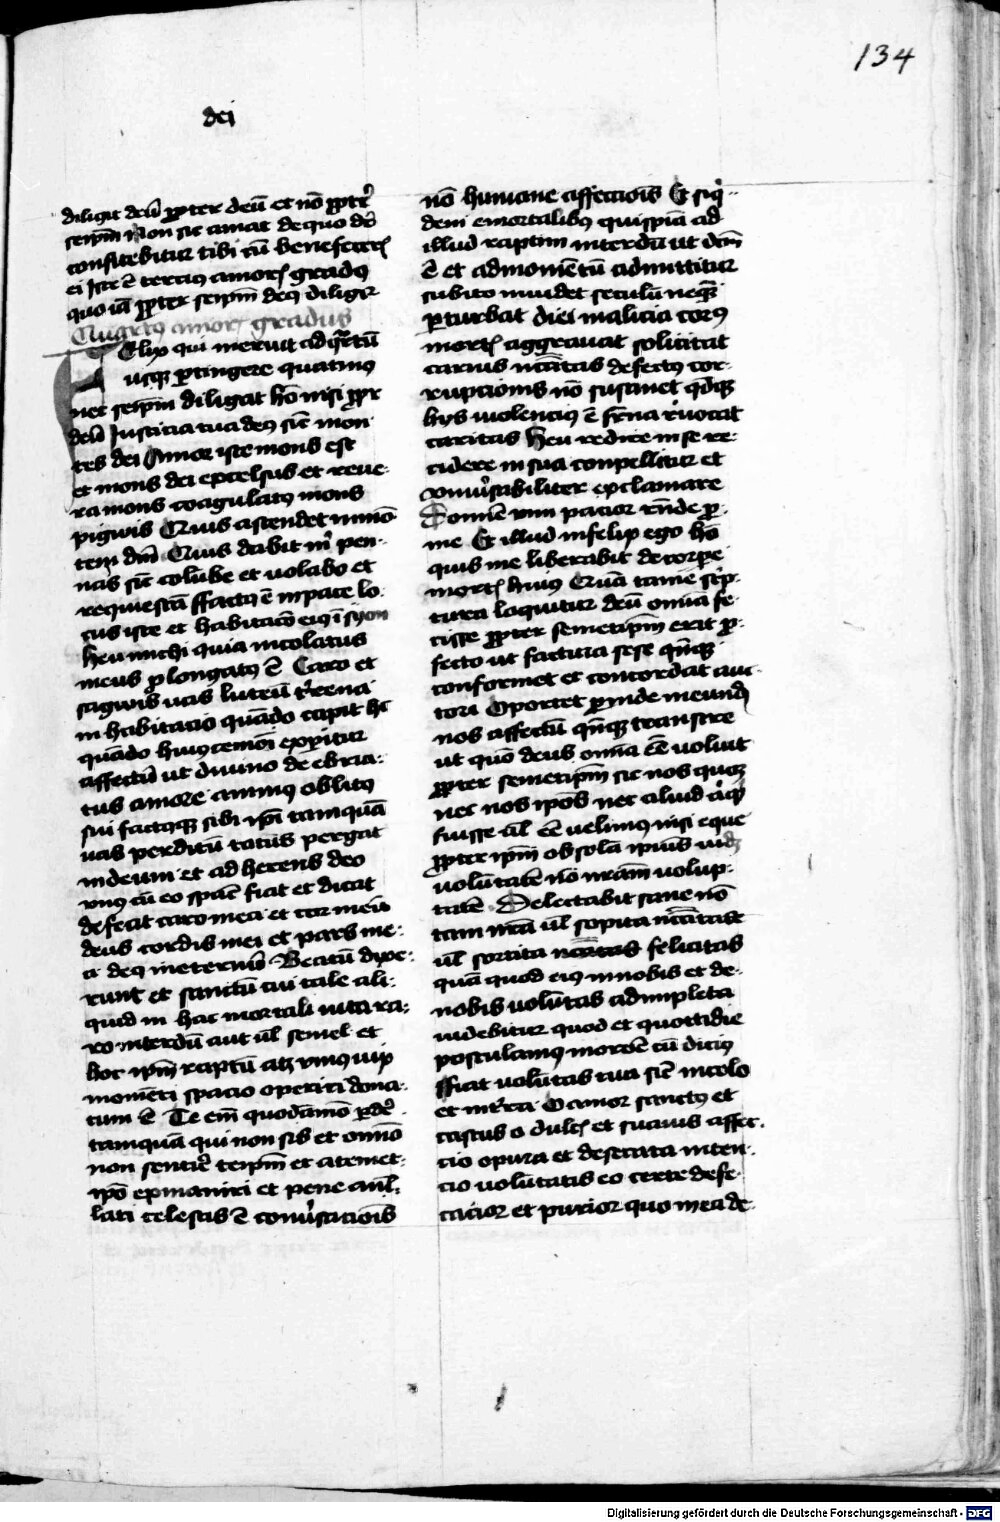 134
dei
diligit deū ꝓpter deū et nō ꝓpt̄
seip̄m Non sic amat de quo dr̄
confitebitur tibi cū benefeceris
ei Iste ē tercius amoris gradus
quo iā ꝓpter seip̄m deus diligit᷑
Quartus amoris gradus
Felix qui meruit ad q̄rtū
usqꝫ ꝑtingere quatinus
nec seip̄m diligat hō nisi ꝓpt
deū Justicia tua deus sic̄ mon
tes dei Amor iste mons est
et mons dei excelsus et reue-
ra mons coagulatus mons
pigwis Quis ascendet in mō
tem dn̄i Quis dabit m̄ pen-
nas sic̄ colūbe et uolabo et
requiescā ffactus ē in pace lo
cus iste et habitacō eius ī syon
Heu michi quia incolatus
meus ꝓlongatus ē Caro et
sagwis uas luteū t̄rena
inhabitacio quādo capit hᶜ
quādo huiuscemōi expitur
affectū ut diuino debria-
tus amore animus oblitus
sui factusqꝫ sibi ip̄i tamquā
uas perditū totus pergat
in deum et adherens deo
vnus cū eo sp̄us fiat et dicat
defecit caro mea et cor meū
deus cordis mei et pars me-
a deus in eternū Beatū dixe-
runt et sanctū cui tale ali-
quid in hac mortali uita ra-
ro interdū aut ul̄ semel et
hoc ip̄m raptū atqꝫ vnius uix
momenti spacio experiri dona-
tum ē Te em̄ quodāmō ꝑdē
tamquā qui non sis et om̄no
non sentir̄ teip̄m et a temet-
ip̄o exinaniri et pene anul-
lari celestis ē conuersacionis
nō humane affeccionis Et siq̄-
dem e mortalibus quispiā ad
illud raptim interdū ut dc̄m
ē et ad momētū admittitur
subito inuidet seculū neqꝫ
ꝑturbat diei malicia corpus
mortis aggrauat solicitat
carnis nc̄citas defectus cor-
rupcionis nō sustinet qd̄qꝫ
hys uiolencius ē fr̄na reuocat
caritas Heu redire in se re-
cidere in sua conpellitur et
miserabiliter exclamare
Domine vim pacior rn̄de ꝓ
me Et illud infelix ego hō
quis me liberabit de corpe
mortis huius Quia tamē sc̄p-
tura loquitur deū omnia fe-
cisse ꝓpter semetip̄m erit ꝓ-
fecto ut factura sese qn̄qꝫ
conformet et concordat auc-
tori Oportet ꝓinde in eundē
nos affectū qn̄qꝫ transire
ut quō deus omnia eē uoluit
ꝓpter semetip̄m sic nos quoqꝫ
nec nos ip̄os nec aliud aliqd̄
fuisse ul̄ eē uelimus nisi eque
ꝓpter ip̄m ob solā ip̄ius uidꝫ
uolūtatē nō nr̄am uolup-
tatē Delectabit sane nō
tam nr̄a ul̄ sopita nc̄citas
ul̄ sortita felicitas
quā quod eius in nobis et de
nobis uolūtas adimpleta
uidebitur quod et quottidie
postulamus in oroē cū dicimus
ffiat uolūtas tua sic̄ in celo
et in t̄ra O amor sanctus et
castus o dulcis et suauis affec-
cio o pura et defecata inten-
cio uolūtatis eo certe defe-
cacior et purior quo in ea de
Digitalisierung gefördert durch die Deutsche Forschungsgemeinschaft - DFG